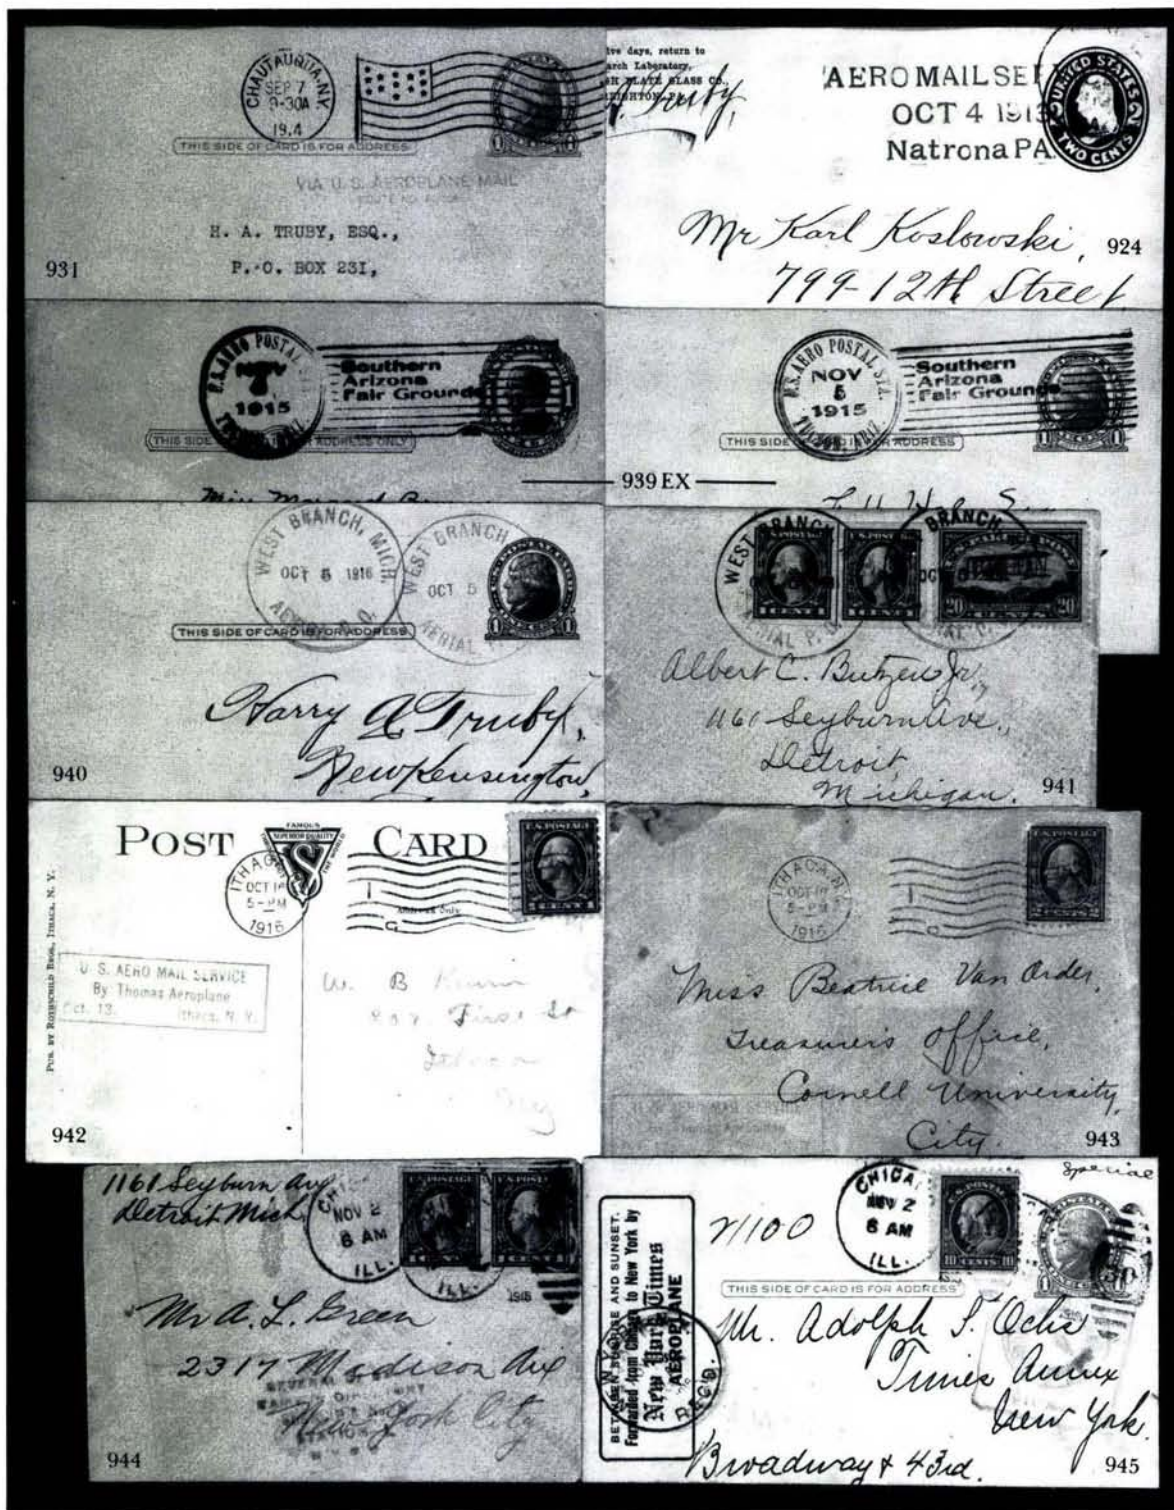 CHAUTAUQUA, N.Y.
SEP 7
9-30A
191
THIS SIDE OF CARD IS FOR ADDRESS
VIA U. S. AEROPLANE MAIL
H. A. TRUBY, ESQ.,
P. O. BOX 231,
931
ive days, return to
arch Laboratory,
GH PLATE GLASS CO.,
REIGHTON, PA.
Truby,
AERO MAIL SER
OCT 4 1913
Natrona PA.
UNITED STATES
2 2
TWO CENTS
Mr Karl Koslowski,
799-12th Street
924
U.S. AERO POSTAL STA.
NOV
1915
TUCSON, ARIZ.
Southern
Arizona
Fair Grounds
THIS SIDE OF CARD IS FOR ADDRESS ONLY
1
Miss
U.S. AERO POSTAL STA.
NOV
5
1915
TUCSON, ARIZ.
Southern
Arizona
Fair Grounds
THIS SIDE OF CARD IS FOR ADDRESS
1 1
939 EX
WEST BRANCH, MICH.
OCT 5 1916
AERIAL P. O.
WEST BRANCH
OCT 5
AERIAL P.
THIS SIDE OF CARD IS FOR ADDRESS
1 1
Harry A Truby,
New Kensington,
940
WEST BRANCH
AERIAL P. O.
U.S. POSTAGE
1 CENT 1
U.S. POSTAGE
1 CENT 1
BRANCH,
OCT
20 20
Albert C. Butzen Jr.,
1161 Seyburn Ave.,
Detroit,
Michigan.
941
POST CARD
FAMOUS
SUPERIOR QUALITY
THE WORLD
S
ITHACA
OCT 1
5-PM
1916
Address Only
U.S. POSTAGE
PUB. BY ROTHSCHILD BROS., ITHACA, N. Y.
U. S. AERO MAIL SERVICE
By Thomas Aeroplane
Oct. 13. Ithaca, N. Y.
W. B
First St
Ithaca
942
ITHACA, N.Y.
OCT 1
5-PM
1916
U.S. POSTAGE
Miss Beatrice Van Order,
Treasurer's Office,
Cornell University,
City.
U. S. AERO MAIL SERVICE
By Thomas Aeroplane
943
1161 Seyburn Ave
Detroit Mich
CHIC
NOV 2
6 AM
ILL.
U.S. POSTAGE
1 CENT 1
U.S. POSTAGE
1 CENT 1
ILL.
Mr A. L. Green
2317 Madison Ave
New York City
944
BETWEEN SUNRISE AND SUNSET.
Forwarded from Chicago to New York by
New York Times
AEROPLANE
REC'D.
21100
CHICA
NOV 2
6 AM
ILL.
U.S. POSTAGE
10 CENTS 10
Special
THIS SIDE OF CARD IS FOR ADDRESS
Mr. Adolph S. Ochs
Times Annex
New York.
Broadway & 43rd.
945